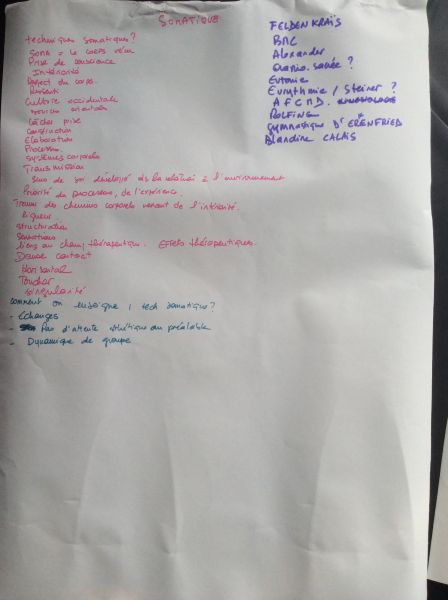 SOMATIQUE
techniques somatiques ?
Soma = le corps vécu
Prise de conscience
Intériorité
Respect du corps.
Ressenti
Culture occidentale
orientale
Lâcher prise
Construction
Elaboration
Processus
Systèmes corporels
Transmission
Sens de soi développé ds la relation à l'environnement
Priorité du processus, de l'expérience
Travail des chemins corporels venant de l'intériorité.
Rigueur
structuration
Sensations
liens au champ thérapeutique. Effets thérapeutiques.
Danse contact
Horizontal
Toucher
singularité
Comment on enseigne 1 tech somatique ?
- échanges
- Pas d'attente esthétique au préalable
- Dynamique de groupe
FELDENKRAÏS
BMC
Alexander
Cranio. sacrée ?
Eutonie
Eurythmie / Steiner ?
A F C M D.
ROLFING
Gymnastique Dr EHRENFRIED
Blandine CALAIS